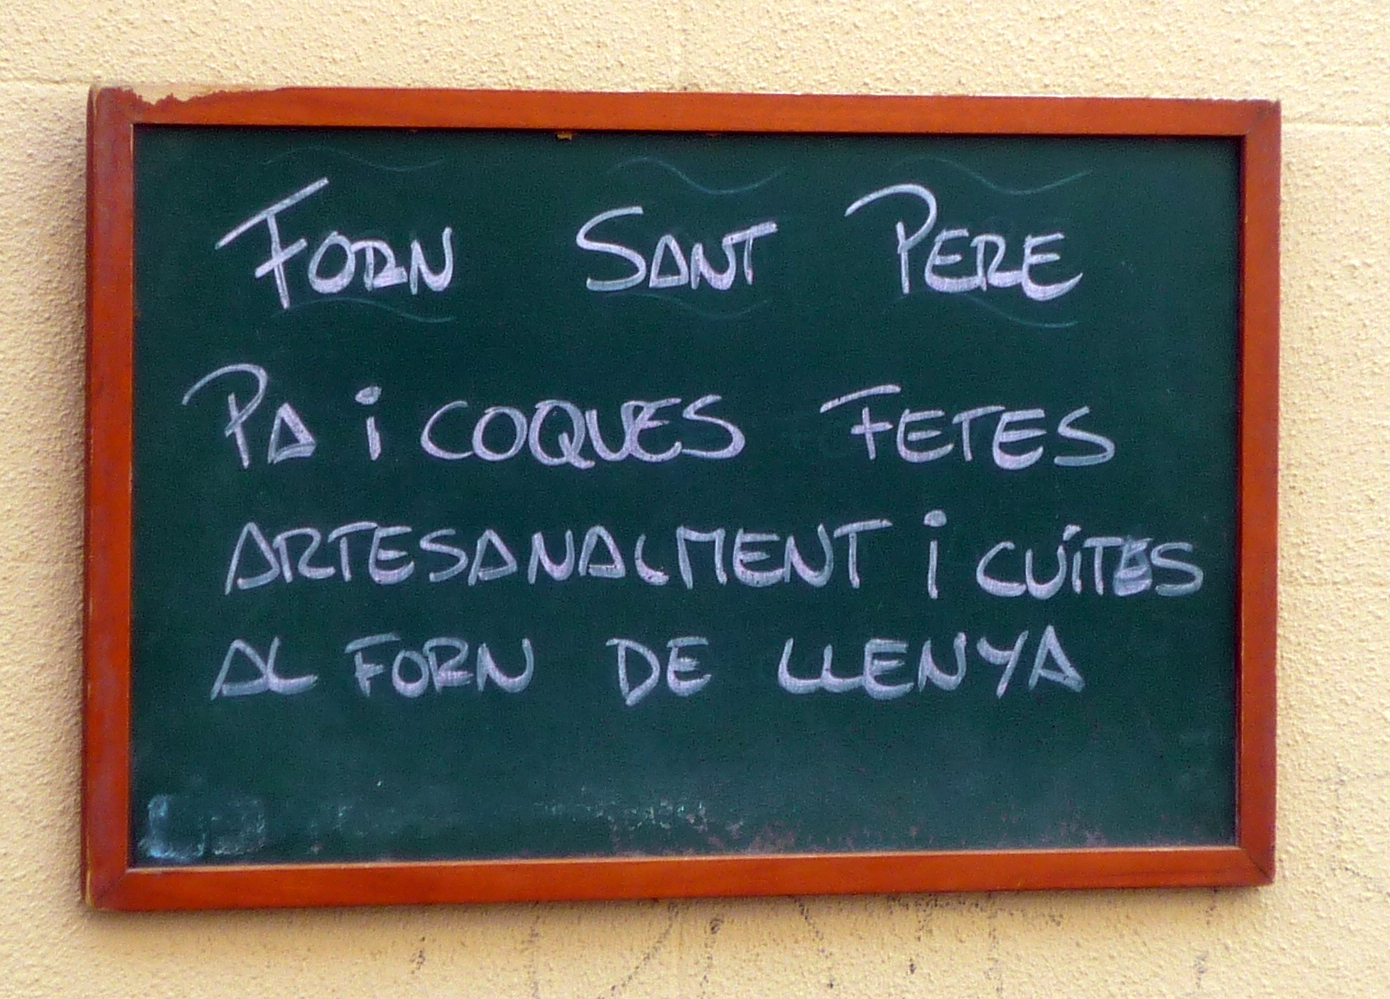 FORN SANT PERE
PA i COQUES FETES
ARTESANALMENT i CUITES
AL FORN DE LLENYA